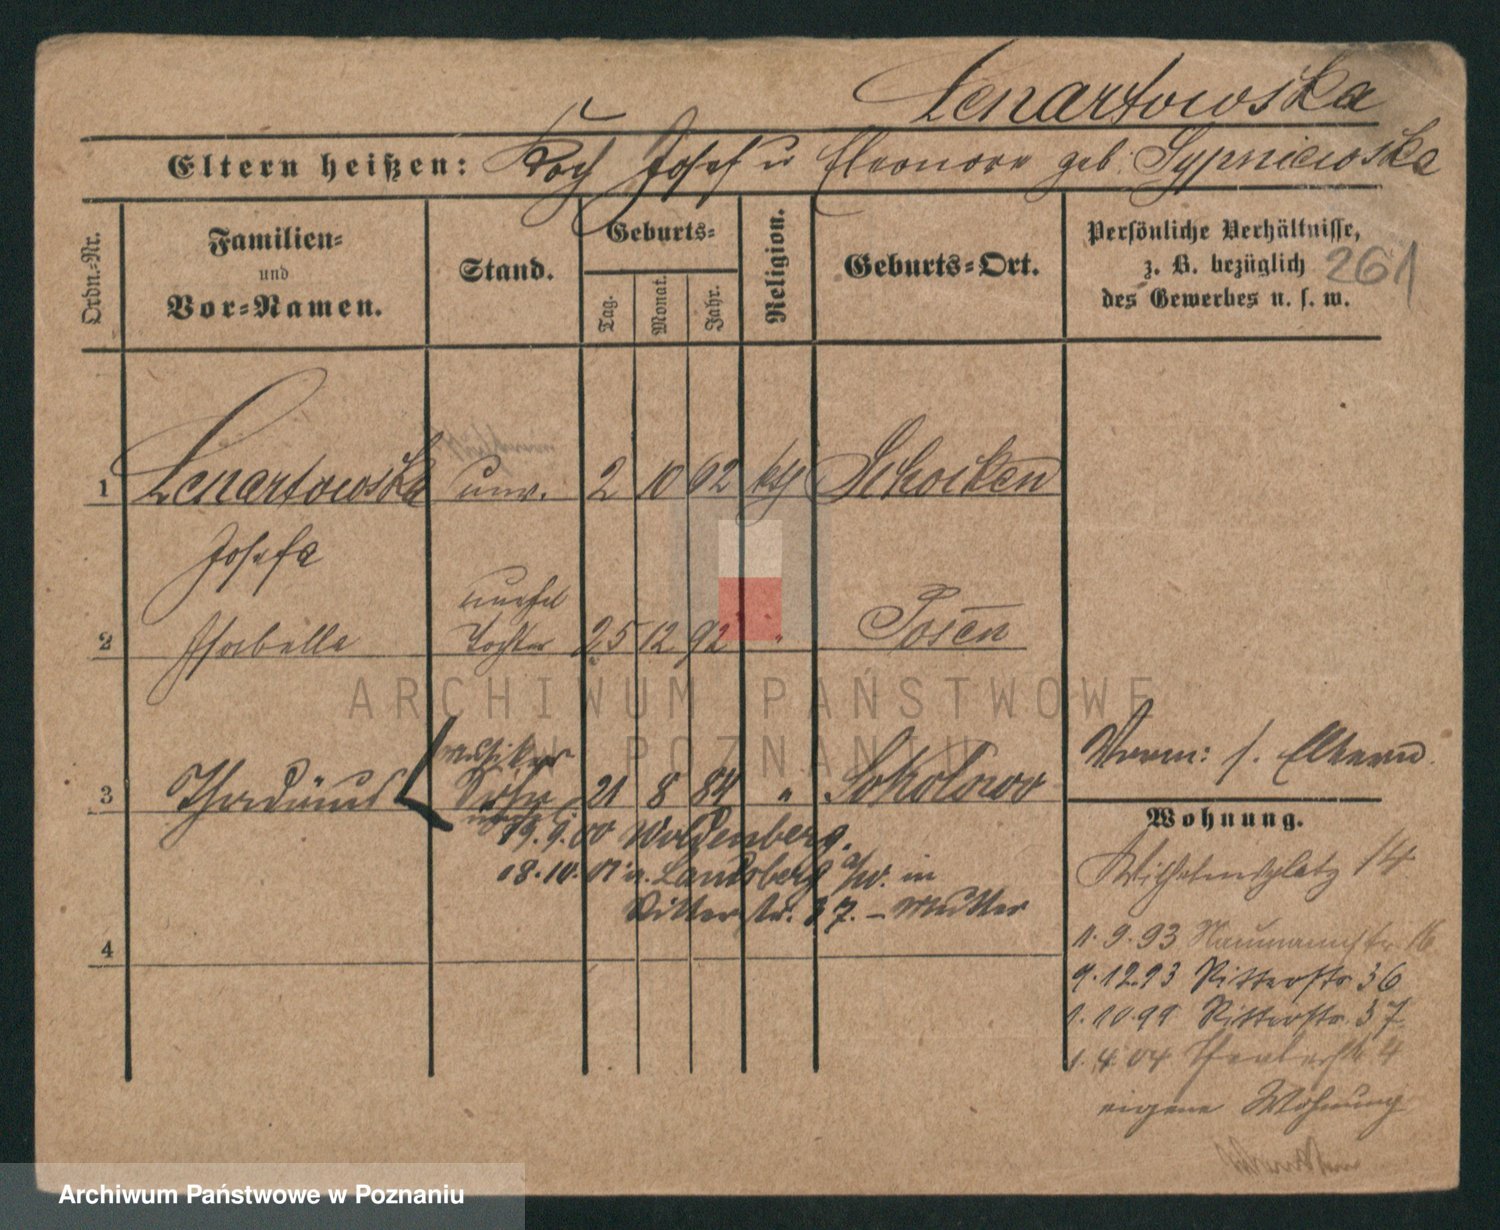 Lenartowska
Eltern heißen: Koch Josef u Eleonore geb. Sypniewska
Ordn.-Nr.
Familien-
und
Vor-Namen.
Stand.
Geburts-
Tag.
Monat.
Jahr.
Religion.
Geburts-Ort.
Persönliche Verhältnisse,
z. B. bezüglich
des Gewerbes u. s. w.
261
1 Lenartowska unv. 2 10 62 kth Schocken
Josefa
unehel
2 Isabella Tochter 25 12 92 " Posen
ARCHIWUM PAŃSTWOWE
W POZNANIU
Musiker
3 Thadäus Sohn 21 8 84 " Sokolowo
unehel.
19.9.00 Woldenberg.
8.10.01 v. Landsberg a/W. in
Ritterstr. 37. – Mutter
4
Vorm: s. Eltern.
Wohnung.
Wilhelmsplatz 14
1.9.93 Naumannstr. 16
9.12.93 Ritterstr 36
1.10.99 Ritterstr. 37
1.4.04 4
eigene Wohnung
Archiwum Państwowe w Poznaniu